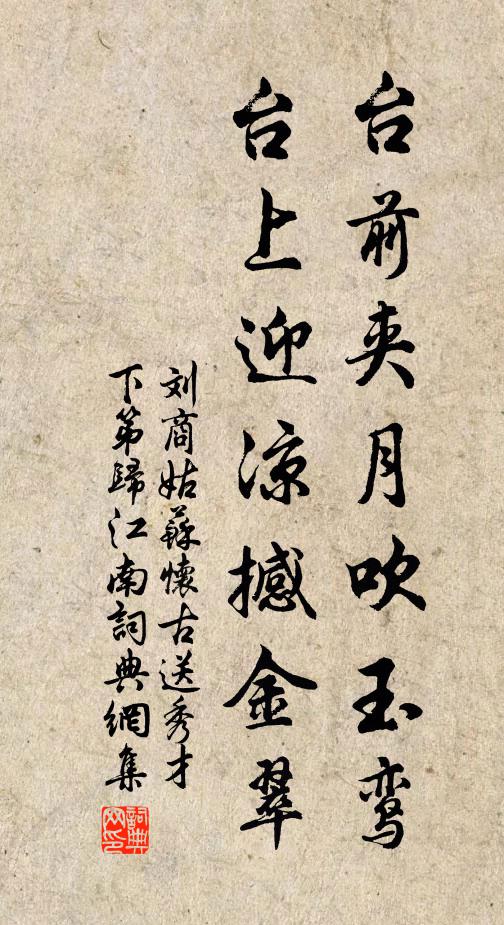 台前夹月吹玉鸾
台上迎凉撼金翠
刘商姑蘇懷古送秀才
下第歸江南詞典網集
詞典网印